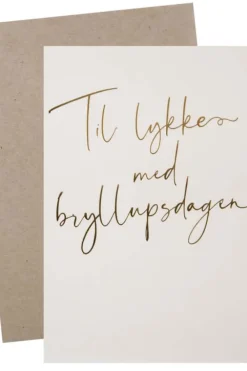 Til lykke
med
bryllupsdagen